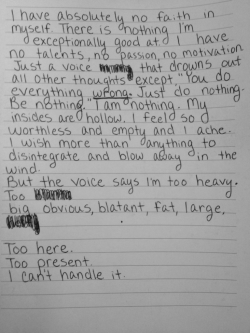 I have absolutely no faith in
myself. There is nothing I'm
exceptionally good at. I have
no talents, no passion, no motivation
Just a voice that drowns out
all other thoughts except, "You do
everything wrong. Just do nothing.
Be nothing." I am nothing. My
insides are hollow. I feel so
worthless and empty and I ache.
I wish more than anything to
disintegrate and blow away in the
wind.
But the voice says I'm too heavy.
Too
big, obvious, blatant, fat, large,
Too here.
Too present.
I can't handle it